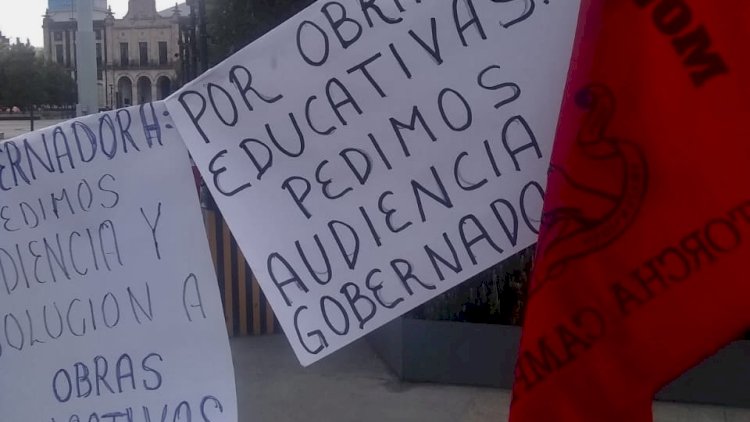 GOBERNADORA:
PEDIMOS
AUDIENCIA Y
SOLUCION A
OBRAS
POR OBRAS
EDUCATIVAS.
PEDIMOS
AUDIENCIA
GOBERNADO
MOV
ANTORCHA CAMP